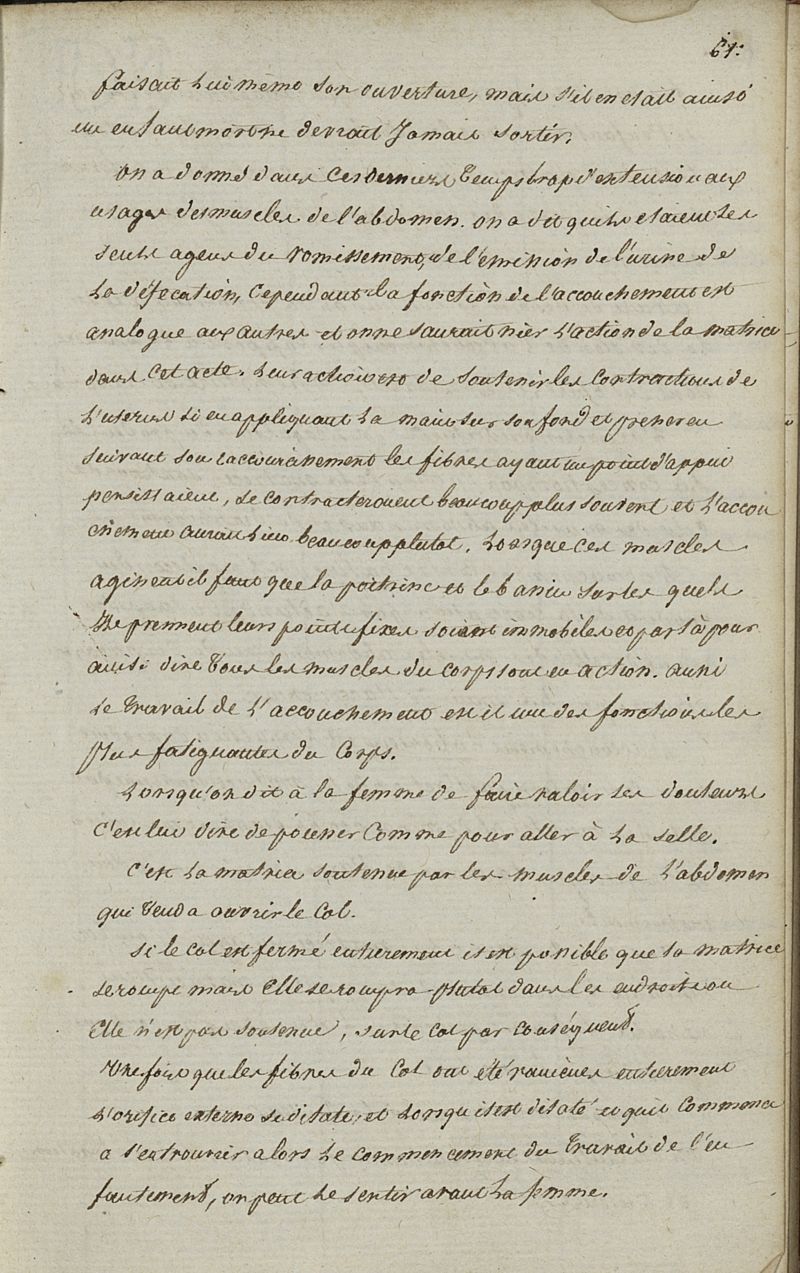 61.
faisait Lui même son ouverture, mais s'il en etait ainsi
un enfant mort ne devrait Jamais sortir.
on a donné dans ces derniers temps trop d'extension aux
usages des muscles de l'abdomen. on a dit qu'ils etaient les
seuls agens du vomissement, de l'émission de l'urine de
La défecation, Cependant la fonction de l'accouchement est
analogue aux autres et on ne saurait nier L'action de la matrice
dans cet acte. Leur action est de soutenir les contractions de
L'uterus si en appliquant La main sur son fond et
suivant son raccourcissement les fibres ayant un point d'appui
, se contracteroient beaucoup plus souvent et L'accou
chement aurait Lieu beaucoup plutot. Lorsque ces muscles
agissent il faut que la poitrine et le bassin sur les quels
Ils prennent leurs points fixes soient immobiles et par là pour
ainsi dire tous les muscles du corps sont en action. aussi
Le travail de L'accouchement est il une des fonctions les
plus fatiguantes du Corps.
Lorsqu'on dit à la femme de faire valoir ses douleurs
c'est lui dire de pousser Comme pour aller à La selle.
C'est La matrice soutenue par les muscles de L'abdomen
qui tend a ouvrir le Col.
si le col est fermé entierement il est possible que la matrice
se rompe mais Elle se rompra plutot dans les endroits ou
Elle n'est pas soutenue, sur le col par conséquent.
Une fois que les fibres du Col ont été vaincues entierement
L'orifice externe se dilate, et Lorsqu'il est dilaté et qu'il commence
a s'entrouvrir alors Le commencement du travail de l'en
fantement, on peut Le sentir avant La femme.